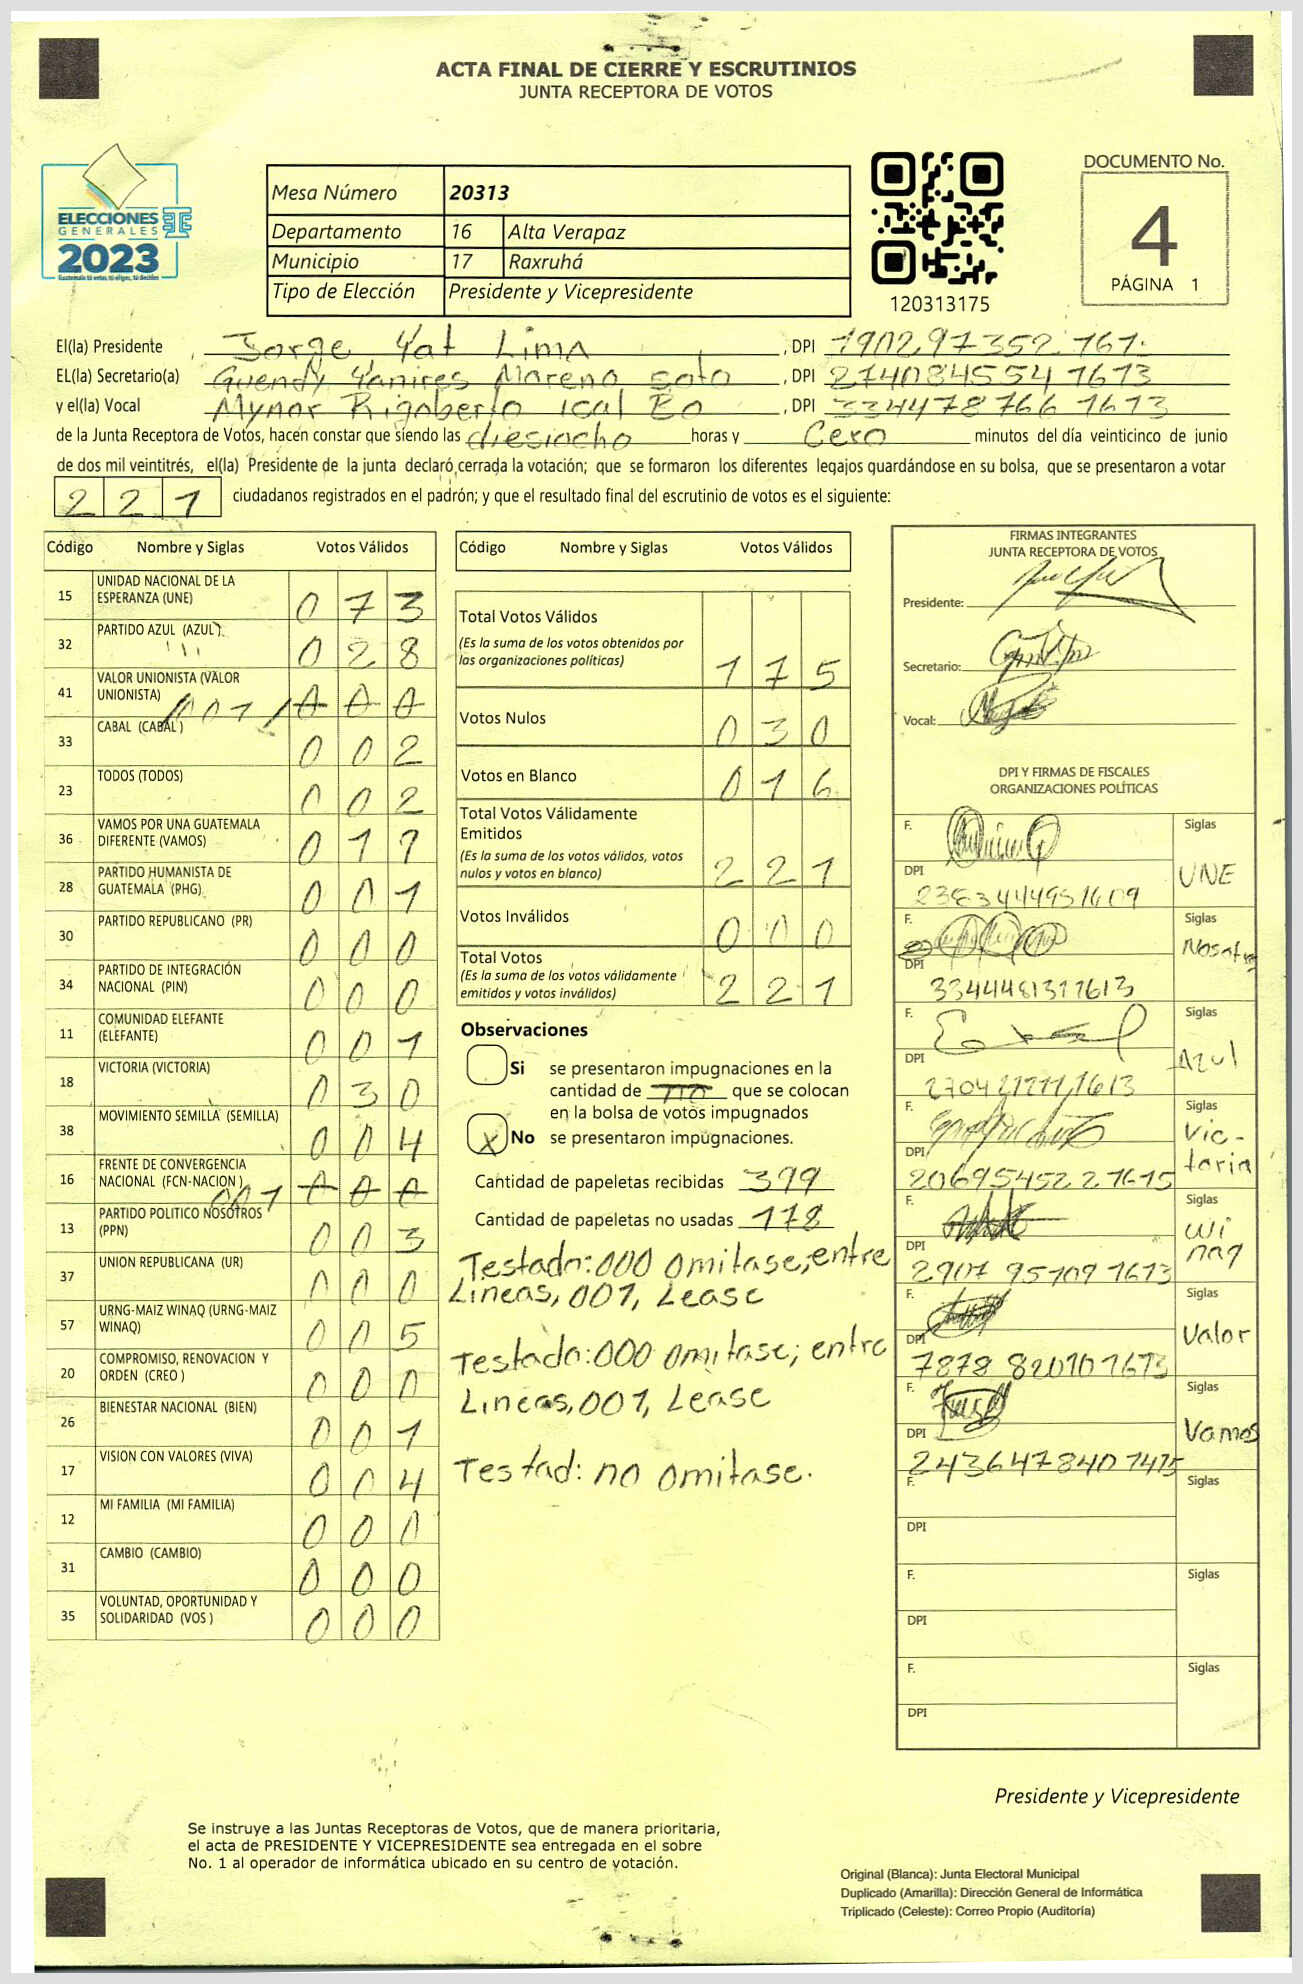 ACTA FINAL DE CIERRE Y ESCRUTINIOS
JUNTA RECEPTORA DE VOTOS
ELECCIONES
GENERALES
2023
Mesa Número 20313
Departamento 16 Alta Verapaz
Municipio 17 Raxruhá
Tipo de Elección Presidente y Vicepresidente
120313175
DOCUMENTO No.
4
PÁGINA 1
El(la) Presidente, Jorge Yat Lima, DPI 190297352 161
EL(la) Secretario(a) Guendy Yanires Moreno Soto, DPI 274084554 1613
y el(la) Vocal Mynor Rigoberto Ical Bo, DPI 334478766 1613
de la Junta Receptora de Votos, hacen constar que siendo las diesiocho horas y Cero minutos del día veinticinco de junio
de dos mil veintitrés, el(la) Presidente de la junta declaró cerrada la votación; que se formaron los diferentes legajos guardándose en su bolsa, que se presentaron a votar
221 ciudadanos registrados en el padrón; y que el resultado final del escrutinio de votos es el siguiente:
Código Nombre y Siglas Votos Válidos
15 UNIDAD NACIONAL DE LA ESPERANZA (UNE) 0 7 3
32 PARTIDO AZUL (AZUL) 0 2 8
41 VALOR UNIONISTA (VALOR UNIONISTA) 001 0 0 0
33 CABAL (CABAL) 0 0 2
23 TODOS (TODOS) 0 0 2
36 VAMOS POR UNA GUATEMALA DIFERENTE (VAMOS) 0 1 9
28 PARTIDO HUMANISTA DE GUATEMALA (PHG) 0 0 1
30 PARTIDO REPUBLICANO (PR) 0 0 0
34 PARTIDO DE INTEGRACIÓN NACIONAL (PIN) 0 0 0
11 COMUNIDAD ELEFANTE (ELEFANTE) 0 0 1
18 VICTORIA (VICTORIA) 0 3 0
38 MOVIMIENTO SEMILLA (SEMILLA) 0 0 4
16 FRENTE DE CONVERGENCIA NACIONAL (FCN-NACION) 001 0 0 0
13 PARTIDO POLITICO NOSOTROS (PPN) 0 0 3
37 UNION REPUBLICANA (UR) 0 0 0
57 URNG-MAIZ WINAQ (URNG-MAIZ WINAQ) 0 0 5
20 COMPROMISO, RENOVACION Y ORDEN (CREO) 0 0 0
26 BIENESTAR NACIONAL (BIEN) 0 0 1
17 VISION CON VALORES (VIVA) 0 0 4
12 MI FAMILIA (MI FAMILIA) 0 0 0
31 CAMBIO (CAMBIO) 0 0 0
35 VOLUNTAD, OPORTUNIDAD Y SOLIDARIDAD (VOS) 0 0 0
Código Nombre y Siglas Votos Válidos
Total Votos Válidos
(Es la suma de los votos obtenidos por
las organizaciones políticas) 1 7 5
Votos Nulos 0 3 0
Votos en Blanco 0 1 6
Total Votos Válidamente
Emitidos
(Es la suma de los votos válidos, votos
nulos y votos en blanco) 2 2 1
Votos Inválidos 0 0 0
Total Votos
(Es la suma de los votos válidamente
emitidos y votos inválidos) 2 2 1
Observaciones
Si se presentaron impugnaciones en la
cantidad de no que se colocan
en la bolsa de votos impugnados
X No se presentaron impugnaciones.
Cantidad de papeletas recibidas 399
Cantidad de papeletas no usadas 178
Testado: 000 omitase; entre
Lineas, 001, Lease
Testado: 000 omitase; entre
Lineas, 001, Lease
Testad: no omitase.
FIRMAS INTEGRANTES
JUNTA RECEPTORA DE VOTOS
Presidente:
Secretario:
Vocal:
DPI Y FIRMAS DE FISCALES
ORGANIZACIONES POLÍTICAS
F. Siglas
DPI UNE
2383444951609
F. Siglas
DPI Nosotros
3344481311613
F. Siglas
DPI Azul
F. Siglas
DPI Victoria
20695452 2 1615
F. Siglas
DPI Winaq
2907 95109 1613
F. Siglas
DPI Valor
7878 82010 1613
F. Siglas
DPI Vamos
2436478401415
F. Siglas
DPI
F. Siglas
DPI
F. Siglas
DPI
Presidente y Vicepresidente
Se instruye a las Juntas Receptoras de Votos, que de manera prioritaria,
el acta de PRESIDENTE Y VICEPRESIDENTE sea entregada en el sobre
No. 1 al operador de informática ubicado en su centro de votación.
Original (Blanca): Junta Electoral Municipal
Duplicado (Amarilla): Dirección General de Informática
Triplicado (Celeste): Correo Propio (Auditoría)